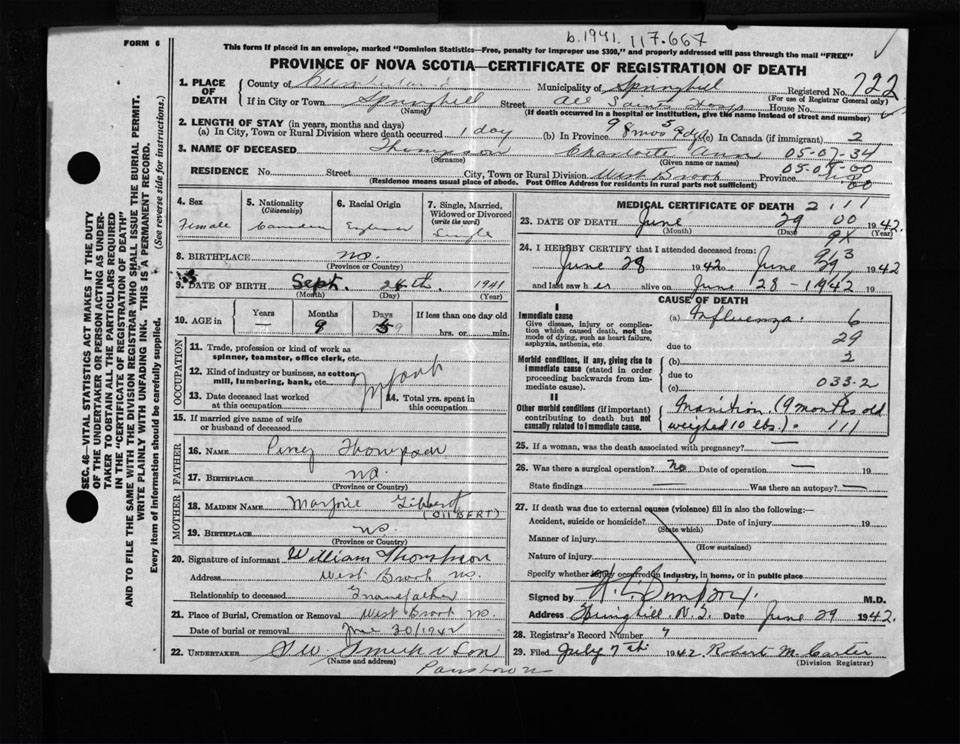 b.1941. 117.667
FORM 6
This form if placed in an envelope, marked "Dominion Statistics—Free, penalty for improper use $300," and properly addressed will pass through the mail "FREE"
PROVINCE OF NOVA SCOTIA—CERTIFICATE OF REGISTRATION OF DEATH
SEC. 46—VITAL STATISTICS ACT MAKES IT THE DUTY
OF THE UNDERTAKER OR PERSON ACTING AS UNDER-
TAKER TO OBTAIN ALL THE PARTICULARS REQUIRED
IN THE "CERTIFICATE OF REGISTRATION OF DEATH"
AND TO FILE THE SAME WITH THE DIVISION REGISTRAR WHO SHALL ISSUE THE BURIAL PERMIT.
WRITE PLAINLY WITH UNFADING INK. THIS IS A PERMANENT RECORD.
Every item of information should be carefully supplied. (See reverse side for instructions.)
1. PLACE OF DEATH
County of Cumberland Municipality of Springhill Registered No. 722
(For use of Registrar General only)
If in City or Town Springhill Street All Saints Hosp House No.
(Name) (If death occurred in a hospital or institution, give the name instead of street and number)
2. LENGTH OF STAY (in years, months and days)
(a) In City, Town or Rural Division where death occurred 1 day (b) In Province 9 mos (c) In Canada (if immigrant) 2
3. NAME OF DECEASED Thompson Charlotte Ann 05-07-34
(Surname) (Given name or names) 05-07-00
RESIDENCE No. Street City, Town or Rural Division West Brook Province
(Residence means usual place of abode. Post Office Address for residents in rural parts not sufficient) 00
4. Sex Female
5. Nationality (Citizenship) Canadian
6. Racial Origin
7. Single, Married, Widowed or Divorced (write the word) Single
8. BIRTHPLACE N.S.
(Province or Country)
9. DATE OF BIRTH Sept. 24th. 1941
(Month) (Day) (Year)
10. AGE in Years — Months 9 Days 5 If less than one day old hrs. or min.
OCCUPATION
11. Trade, profession or kind of work as spinner, teamster, office clerk, etc.
12. Kind of industry or business, as cotton mill, lumbering, bank, etc. Infant
13. Date deceased last worked at this occupation
14. Total yrs. spent in this occupation
15. If married give name of wife or husband of deceased
FATHER
16. NAME Percy Thompson
17. BIRTHPLACE N.S.
(Province or Country)
MOTHER
18. MAIDEN NAME Marjorie Gilbert
(GILBERT)
19. BIRTHPLACE N.S.
(Province or Country)
20. Signature of informant William Thompson
Address West Brook N.S.
Relationship to deceased Grandfather
21. Place of Burial, Cremation or Removal West Brook N.S.
Date of burial or removal June 30/1942
22. UNDERTAKER Smith & Son
(Name and address) Parrsboro
MEDICAL CERTIFICATE OF DEATH 2111
23. DATE OF DEATH June 29 00 1942
(Month) (Day) (Year)
24. I HEREBY CERTIFY that I attended deceased from:
June 28 1942 to June 29 1942
and last saw her alive on June 28 - 1942 19
CAUSE OF DEATH
I
Immediate cause
Give disease, injury or complication which caused death, not the mode of dying, such as heart failure, asphyxia, asthenia, etc.
(a) Influenza. 6
due to 29
Morbid conditions, if any, giving rise to immediate cause (stated in order proceeding backwards from immediate cause).
(b) 3
due to
(c) 033-2
II
Other morbid conditions (if important) contributing to death but not causally related to immediate cause.
Inanition (9 months old
weighed 10 lbs.). 111
25. If a woman, was the death associated with pregnancy? —
26. Was there a surgical operation? No Date of operation — 19
State findings — Was there an autopsy? —
27. If death was due to external causes (violence) fill in also the following:—
Accident, suicide or homicide? Date of injury 19
(State which)
Manner of injury
(How sustained)
Nature of injury
Specify whether injury occurred in industry, in home, or in public place
Signed by M.D.
Address Springhill, N.S. Date June 29 1942.
28. Registrar's Record Number 7
29. Filed July 7th 1942. Robert M. Carter
(Division Registrar)